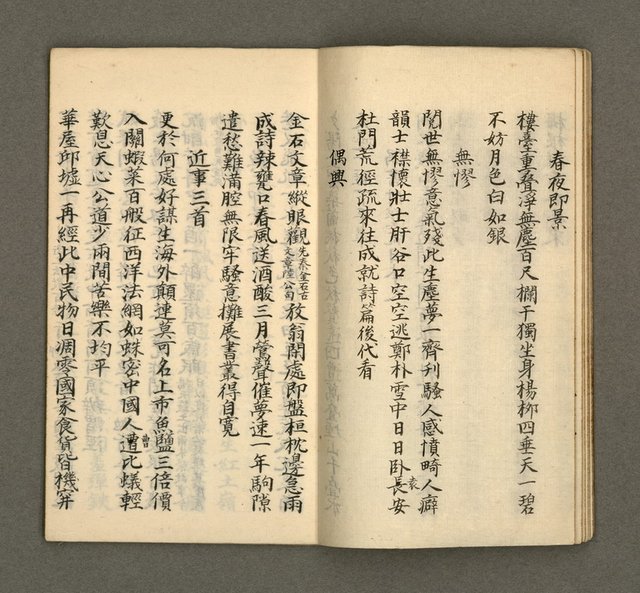 春夜即景
樓臺重疊淨無塵百尺欄干獨坐身楊柳四垂天一碧
不妨月色白如銀
無憀
閱世無憀意氣殘此生塵夢一齊刊騷人感憤畸人癖
韻士襟懷壯士肝谷口空空逃鄭朴雪中日日臥長安袁
杜門荒徑疏來往成就詩篇後代看
偶興
金石文章縱眼觀先秦金石古文章陸公句放翁閑處即盤桓枕邊急雨
成詩辣甕口春風送酒酸三月鶯聲催夢速一年駒隙
遣愁難滿腔無限牢騷意攤展書叢得自寬
近事三首
更於何處好謀生海外顛連莫可名上市魚鹽三倍價
入關蝦菜百般征西洋法網如蛛密中國人遭比蟻輕曹
歎息天心公道少兩間苦樂不均平
華屋邱墟一再經此中民物日凋零國家食貨皆機穽